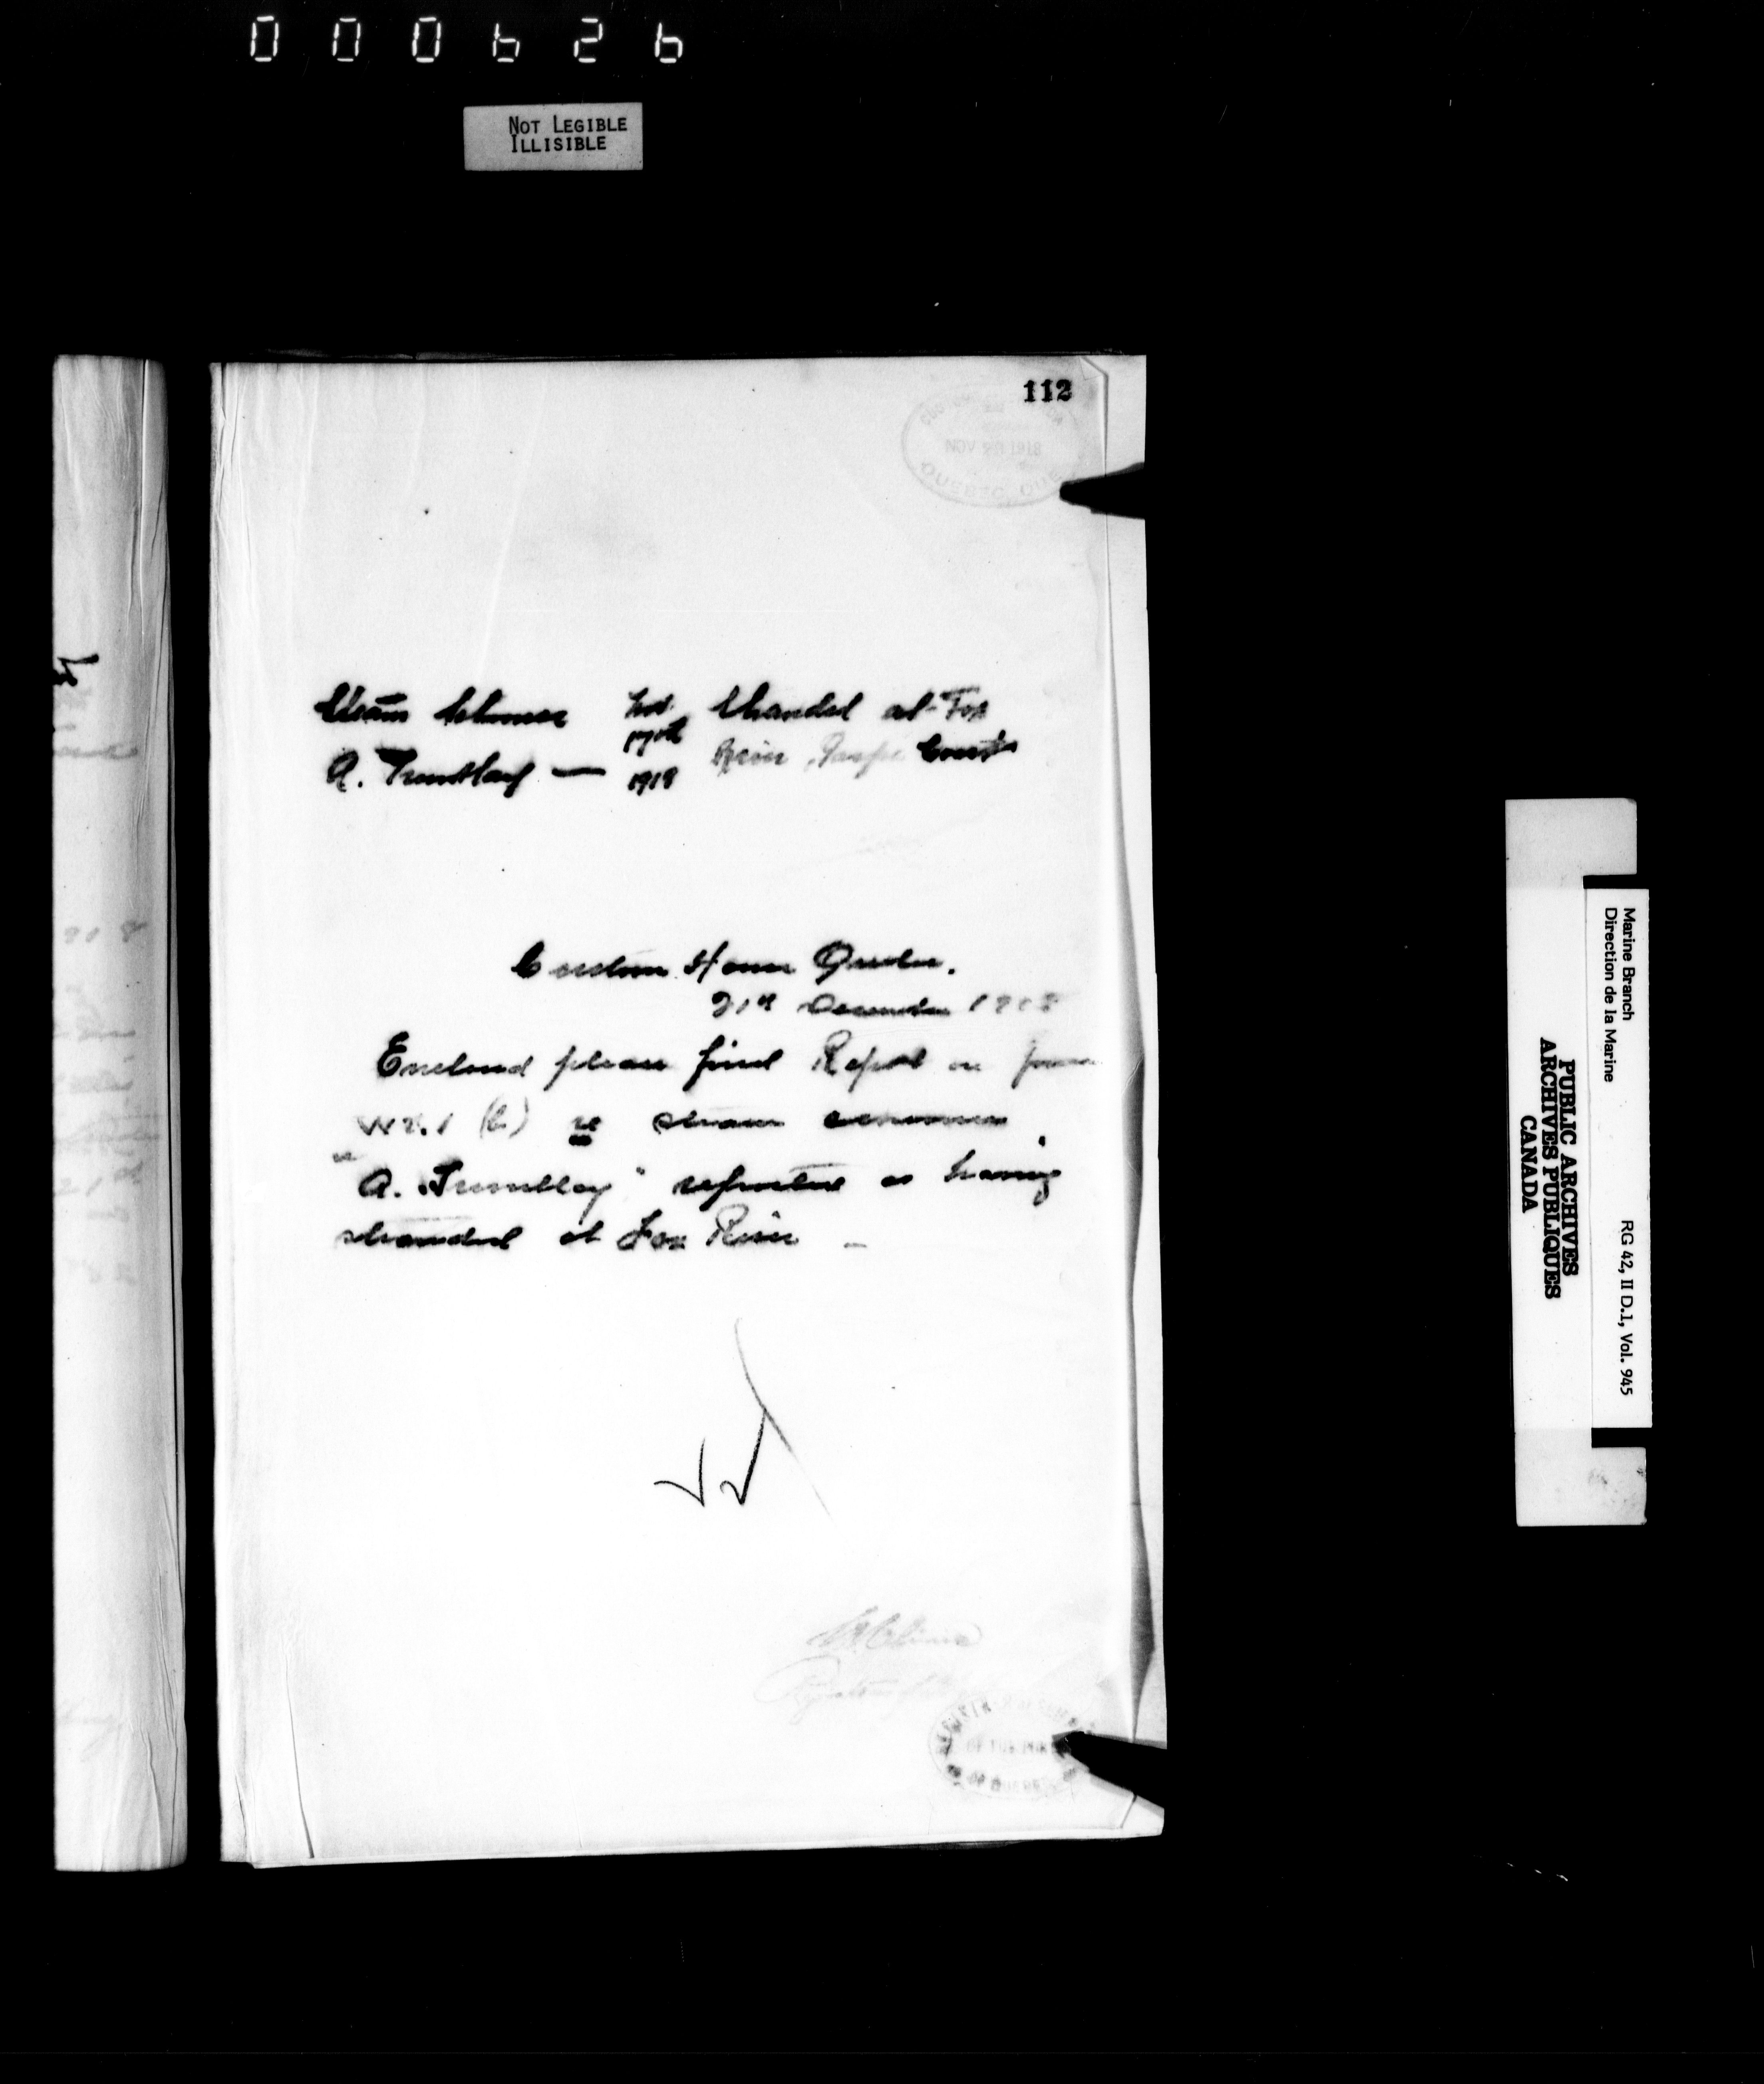 000626
NOT LEGIBLE
ILLISIBLE
112
NOV 1918
QUEBEC, QUE
Steam Schooner Nov. Stranded at Fox
17th River, Gaspe Coast
A. Tremblay — 1918
Custom House Quebec.
21st December 1918
Enclosed please find Report on form
W2.1 (b) re steam schooner
"A. Tremblay" reported as having
stranded at Fox River –
OF THE
QUEBEC
Marine Branch
Direction de la Marine
RG 42, II D.1, Vol. 945
PUBLIC ARCHIVES
ARCHIVES PUBLIQUES
CANADA